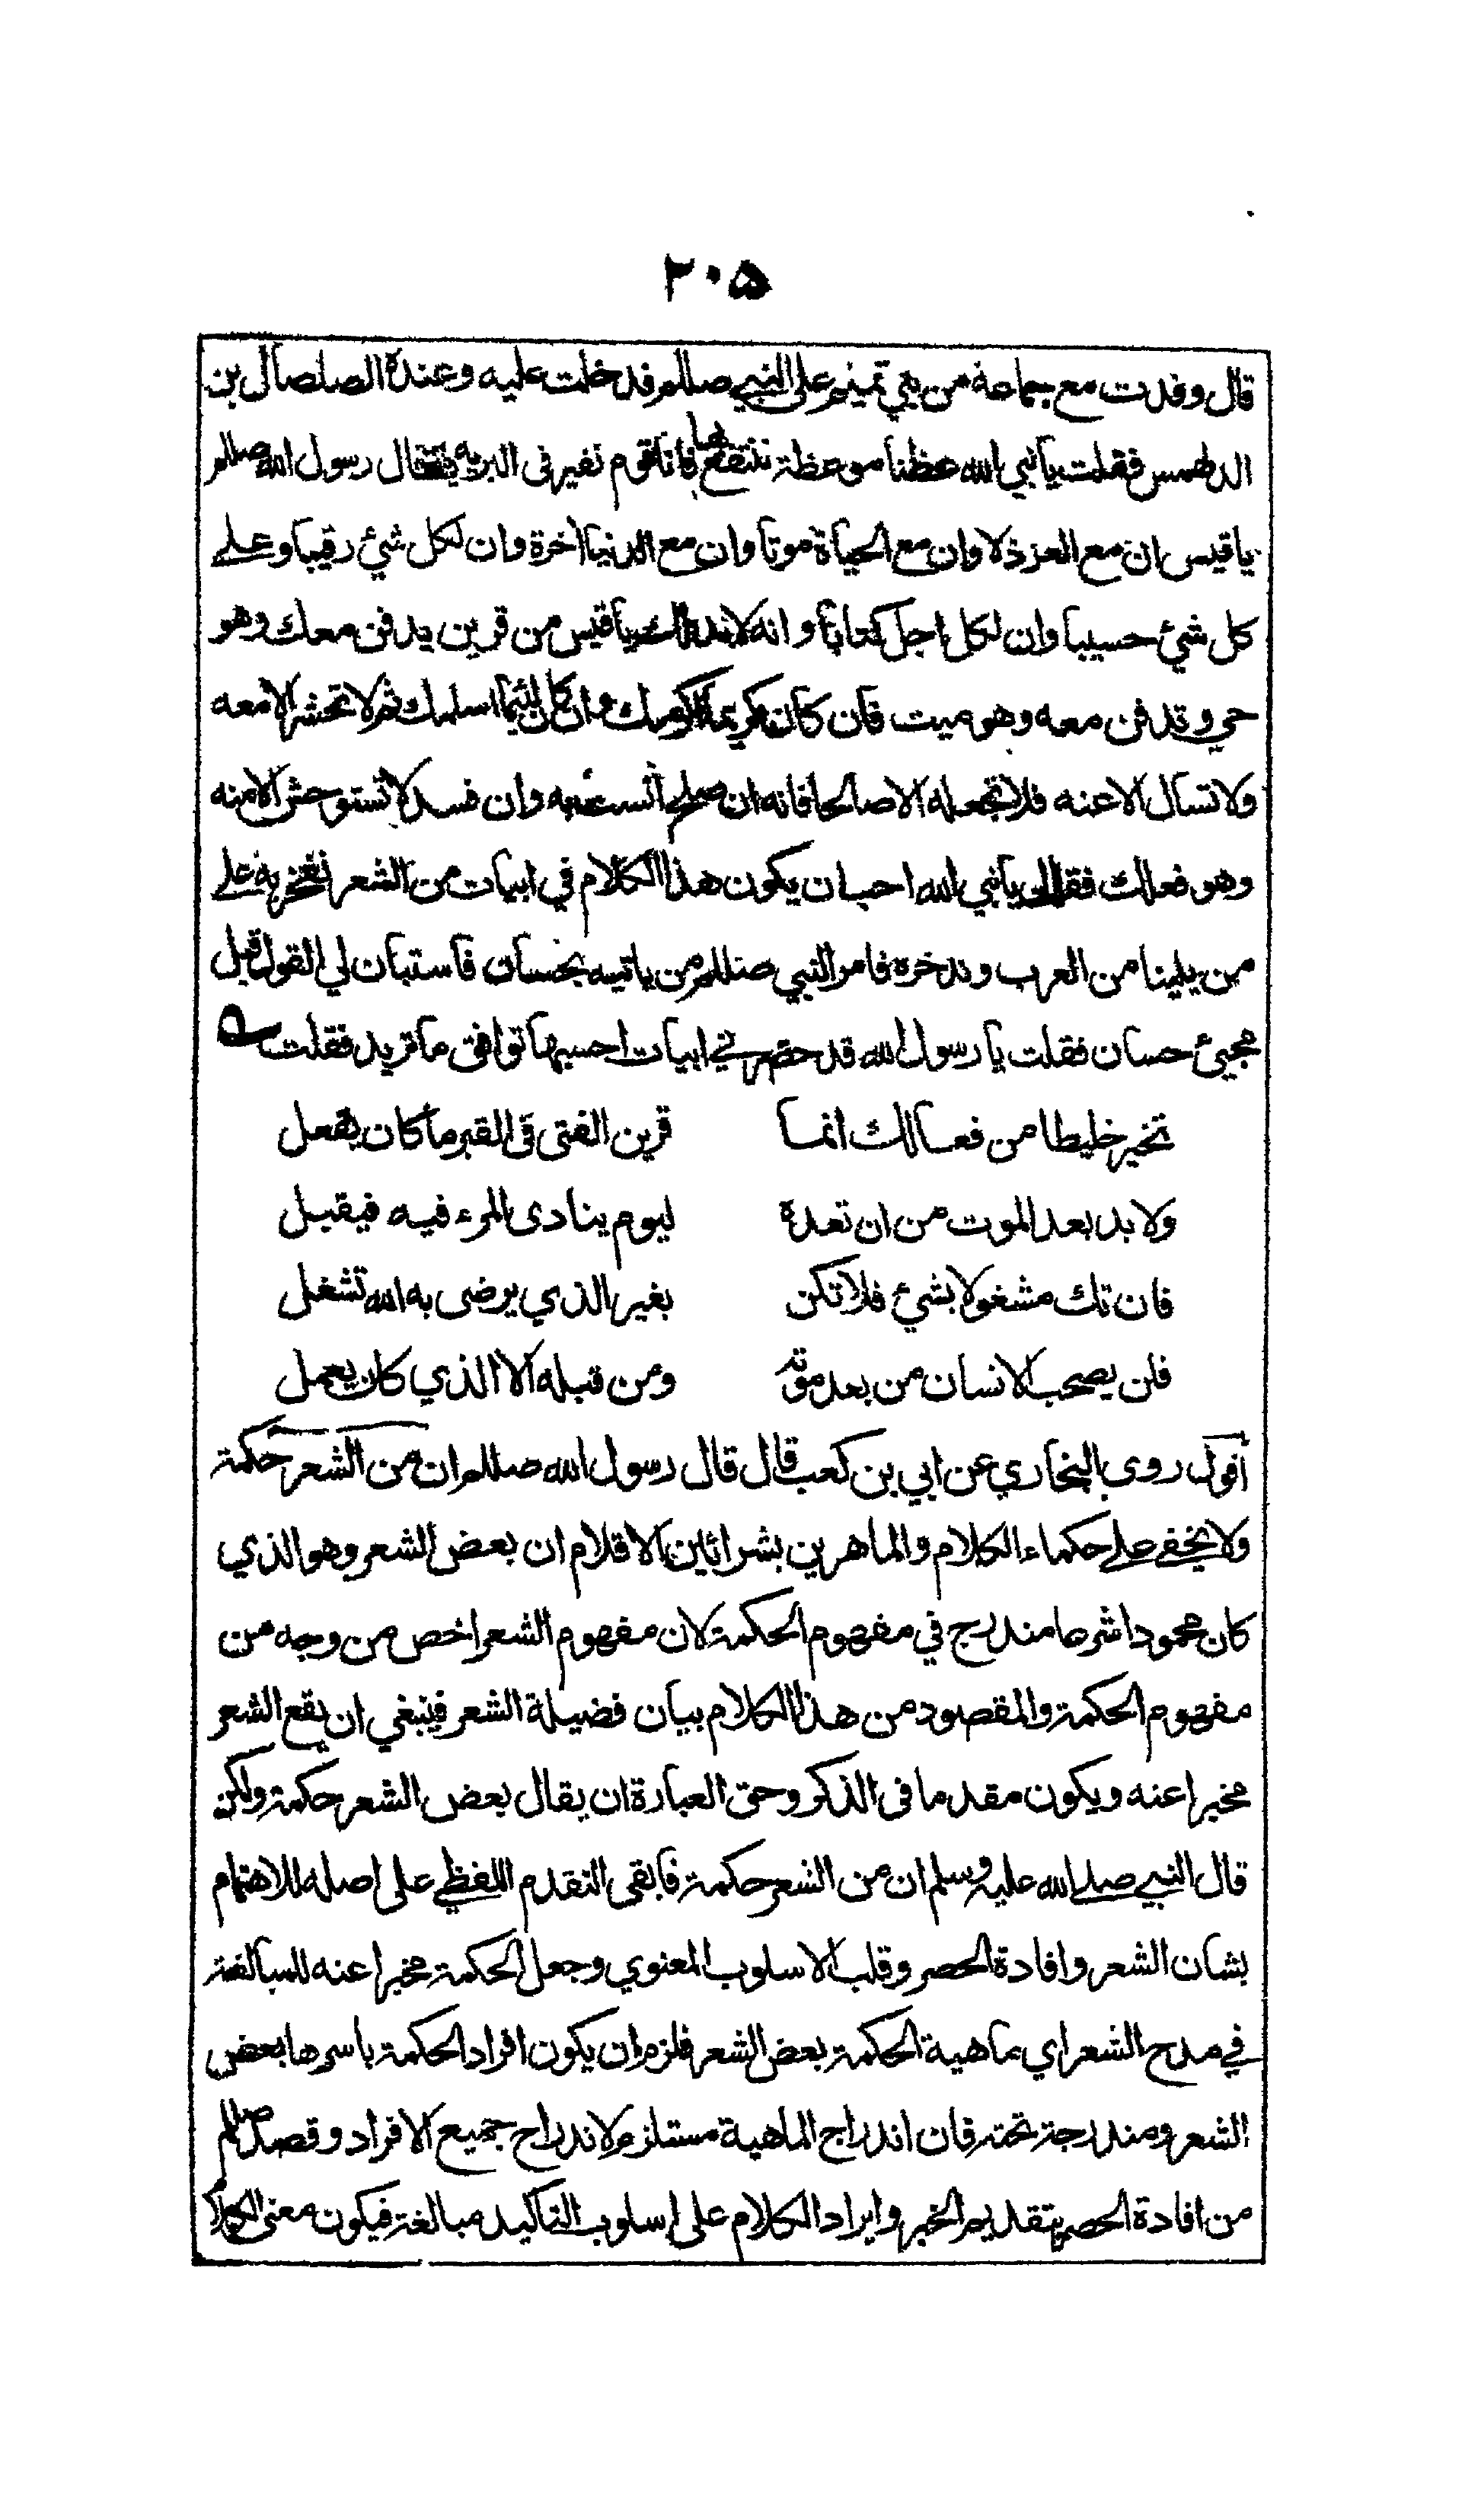 ٢٠٥
قال وفدت مع جماعة من بني تميم على النبي صللم فدخلت عليه وعنده الصلصال بن
الدلهمس فقلت يا نبي الله عظنا موعظة ننتفع بها فانا قوم نغير في البريه فقال رسول الله صللم
يا قيس ان مع العز ذلا وان مع الحياة موتا وان مع الدنيا آخرة وان لكل شيء رقيبا وعلى
كل شيء حسيبا وان لكل اجل كتابا وانه لا بد لك يا قيس من قرين يدفن معك وهو
حي وتدفن معه وهو ميت فان كان كريما اكرمك وان كان لئيما اسلمك ثم لا تحشر الا معه
ولا تسأل الا عنه فلا تجعله الا صالحا فانه ان صلح آنست به وان فسد لا تستوحش الا منه
وهو فعلك فقال يا نبي الله احب ان يكون هذا الكلام في ابيات من الشعر نفخر به على
من يلينا من العرب وندخره فامر النبي صللم من ياتيه بحسان فاستبان لي القول قبل
مجيئ حسان فقلت يا رسول الله قد حضرني ابيات احسبها توافق ما تريد فقلت ؎
تخير خليطا من فعالك انما قرين الفتى في القبر ما كان يفعل
ولا بد بعد الموت من ان تعده ليوم ينادى المرء فيه فيقبل
فان تك مشغولا بشيء فلا تكن بغير الذي يرضى به الله تشغل
فلن يصحب الانسان من بعد موته ومن قبله الا الذي كان يعمل
اقول روى البخاري عن ابي بن كعب قال قال رسول الله صللم ان من الشعر حكمة
ولا يخفى على حكماء الكلام والماهرين بشرائين الاقلام ان بعض الشعر وهو الذي
كان محمودا شرعا مندرج في مفهوم الحكمة لان مفهوم الشعر اخص من وجه من
مفهوم الحكمة والمقصود من هذا الكلام بيان فضيلة الشعر فينبغي ان يقع الشعر
مخبرا عنه ويكون مقدما في الذكر وحق العبارة ان يقال بعض الشعر حكمة ولكن
قال النبي صلى الله عليه وسلم ان من الشعر حكمة فابقى التقدم اللفظي على اصله للاهتمام
بشان الشعر وافادة الحصر وقلب الاسلوب المعنوي وجعل الحكمة مخبرا عنه للمبالغة
في مدح الشعر اي ماهية الحكمة بعض الشعر فلزم ان يكون افراد الحكمة باسرها بعض
الشعر ومندرجة تحته فان اندراج الماهية مستلزم لاندراج جميع الافراد وقصد صللم
من افادة الحصر بتقديم الخبر وايراد الكلام على اسلوب التاكيد مبالغة فيكون معنى الكلام